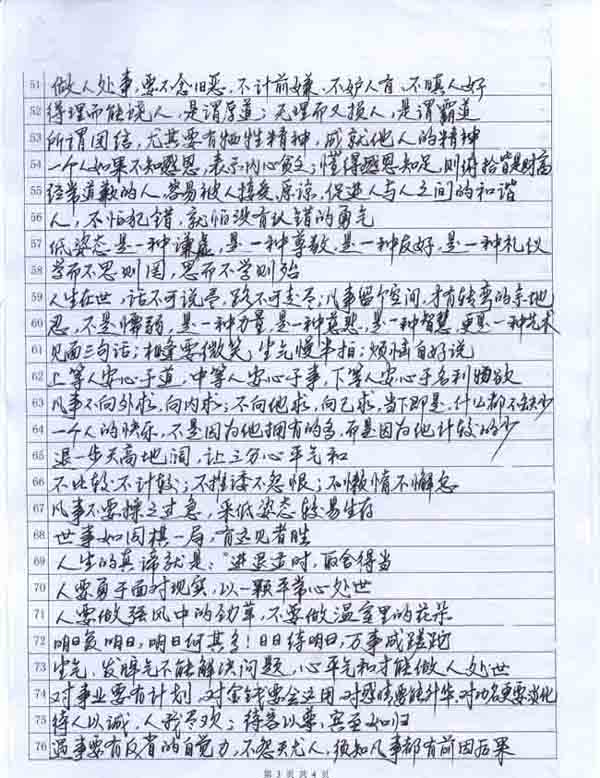 51 做人处事,要不念旧恶,不计前嫌,不妒人有,不嗔人好
52 得理而能饶人,是谓厚道;无理而又损人,是谓霸道
53 所谓团结,尤其要有牺牲精神,成就他人的精神
54 一个人如果不知感恩,表示内心贫乏;懂得感恩知足,则俯拾皆是财富
55 经常道歉的人,容易被人接受、原谅,促进人与人之间的和谐
56 人,不怕犯错,就怕没有认错的勇气
57 低姿态是一种谦虚,是一种尊敬,是一种友好,是一种礼仪
58 学而不思则罔,思而不学则殆
59 人生在世,话不可说尽,路不可走尽;凡事留个空间,才有转弯的余地
60 忍,不是懦弱,是一种力量,是一种慈悲,是一种智慧,更是一种艺术
61 见面三句话;相逢要微笑,生气慢半拍;烦恼自好说
62 上等人安心于道,中等人安心于事,下等人安心于名利物欲
63 凡事不向外求,向内求;不向他求,向己求,当下即是,什么都不缺少
64 一个人的快乐,不是因为他拥有的多,而是因为他计较的少
65 退一步天高地阔,让三分心平气和
66 不比较不计较;不推诿不怨恨;不懒惰不懈怠
67 凡事不要操之过急,采低姿态较易生存
68 世事如同棋一局,有远见者胜
69 人生的真谛就是:"进退适时,取舍得当
70 人要勇于面对现实,以一颗平常心处世
71 人要做强风中的劲草,不要做温室里的花朵
72 明日复明日,明日何其多!日日待明日,万事成蹉跎
73 生气、发脾气不能解决问题,心平气和才能做人处世
74 对事业要有计划,对金钱要会运用,对感情要能升华,对功名更要淡化
75 待人以诚,人我尽欢;待客以尊,宾至如归
76 遇事要有反省的自觉力,不怨天尤人,须知凡事都有前因后果
第 3 页 共 4 页